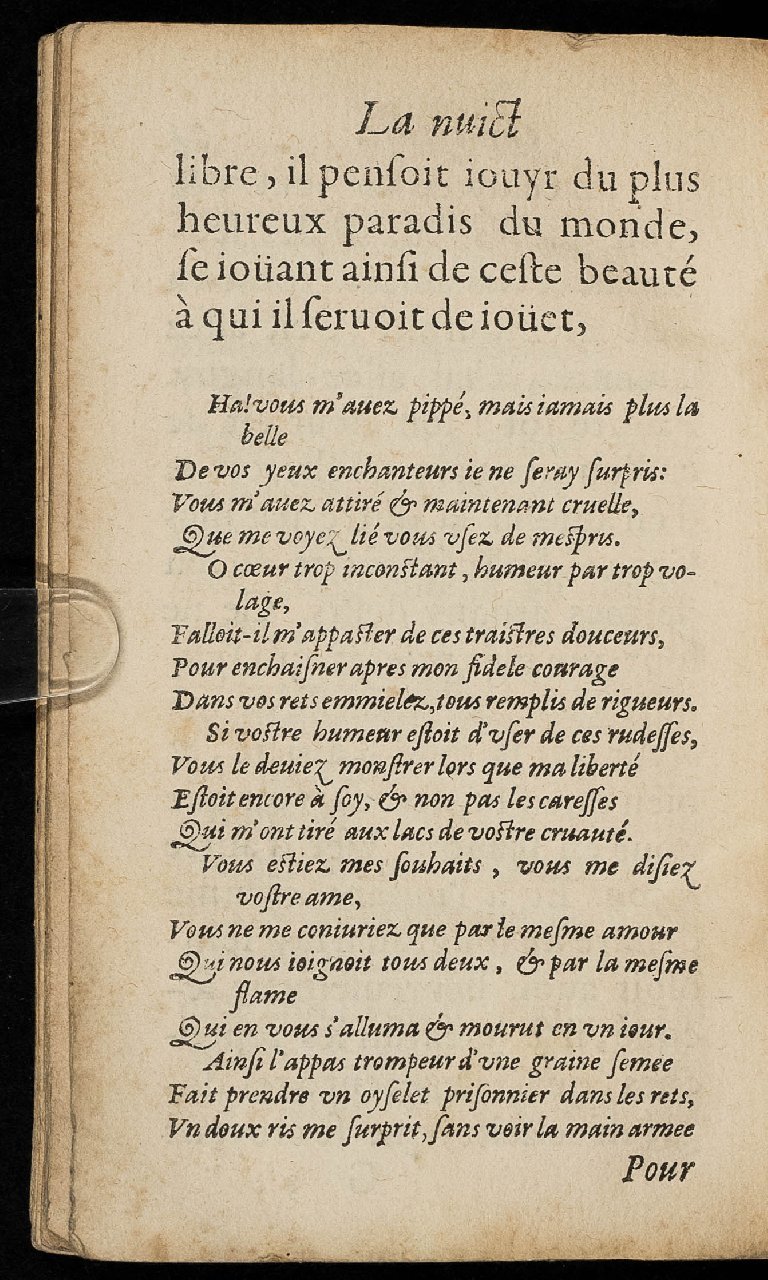 La nuict
libre, il penſoit iouyr du plus
heureux paradis du monde,
ſe ioüant ainſi de ceſte beauté
à qui il ſeruoit de ioüet,
Ha! vous m'auez pippé, mais iamais plus la
belle
De vos yeux enchanteurs ie ne ſeray ſurpris:
Vous m'auez attiré & maintenant cruelle,
Que me voyez lié vous vſez de meſpris.
O cœur trop inconſtant, humeur par trop vo-
lage,
Falloit-il m'appaſter de ces traiſtres douceurs,
Pour enchaiſner apres mon fidele courage
Dans vos rets emmielez, tous remplis de rigueurs.
Si voſtre humeur eſtoit d'vſer de ces rudeſſes,
Vous le deuiez monſtrer lors que ma liberté
Eſtoit encore à ſoy, & non pas les careſſes
Qui m'ont tiré aux lacs de voſtre cruauté.
Vous eſtiez mes ſouhaits, vous me diſiez
voſtre ame,
Vous ne me coniuriez que par le meſme amour
Qui nous ioignoit tous deux, & par la meſme
flame
Qui en vous s'alluma & mourut en vn iour.
Ainſi l'appas trompeur d'vne graine ſemee
Fait prendre vn oyſelet priſonnier dans les rets,
Vn doux ris me ſurprit, ſans voir la main armee
Pour